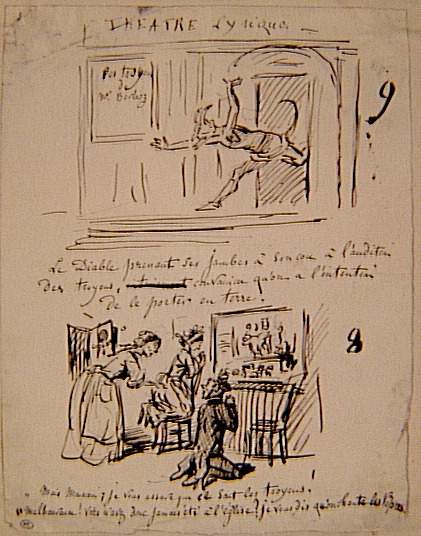 THÉATRE Lyrique
Les troyens
de
Mr Berlioz
9
Le Diable prenant ses jambes à son cou à l'audition
des troyens, convaincu qu'on a l'intention
de le porter en terre.
8
Mais Maman, je vous assure que ce sont les troyens!
Malheureux! vous n'avez donc jamais été à l'église? je vous dis qu'on chante les